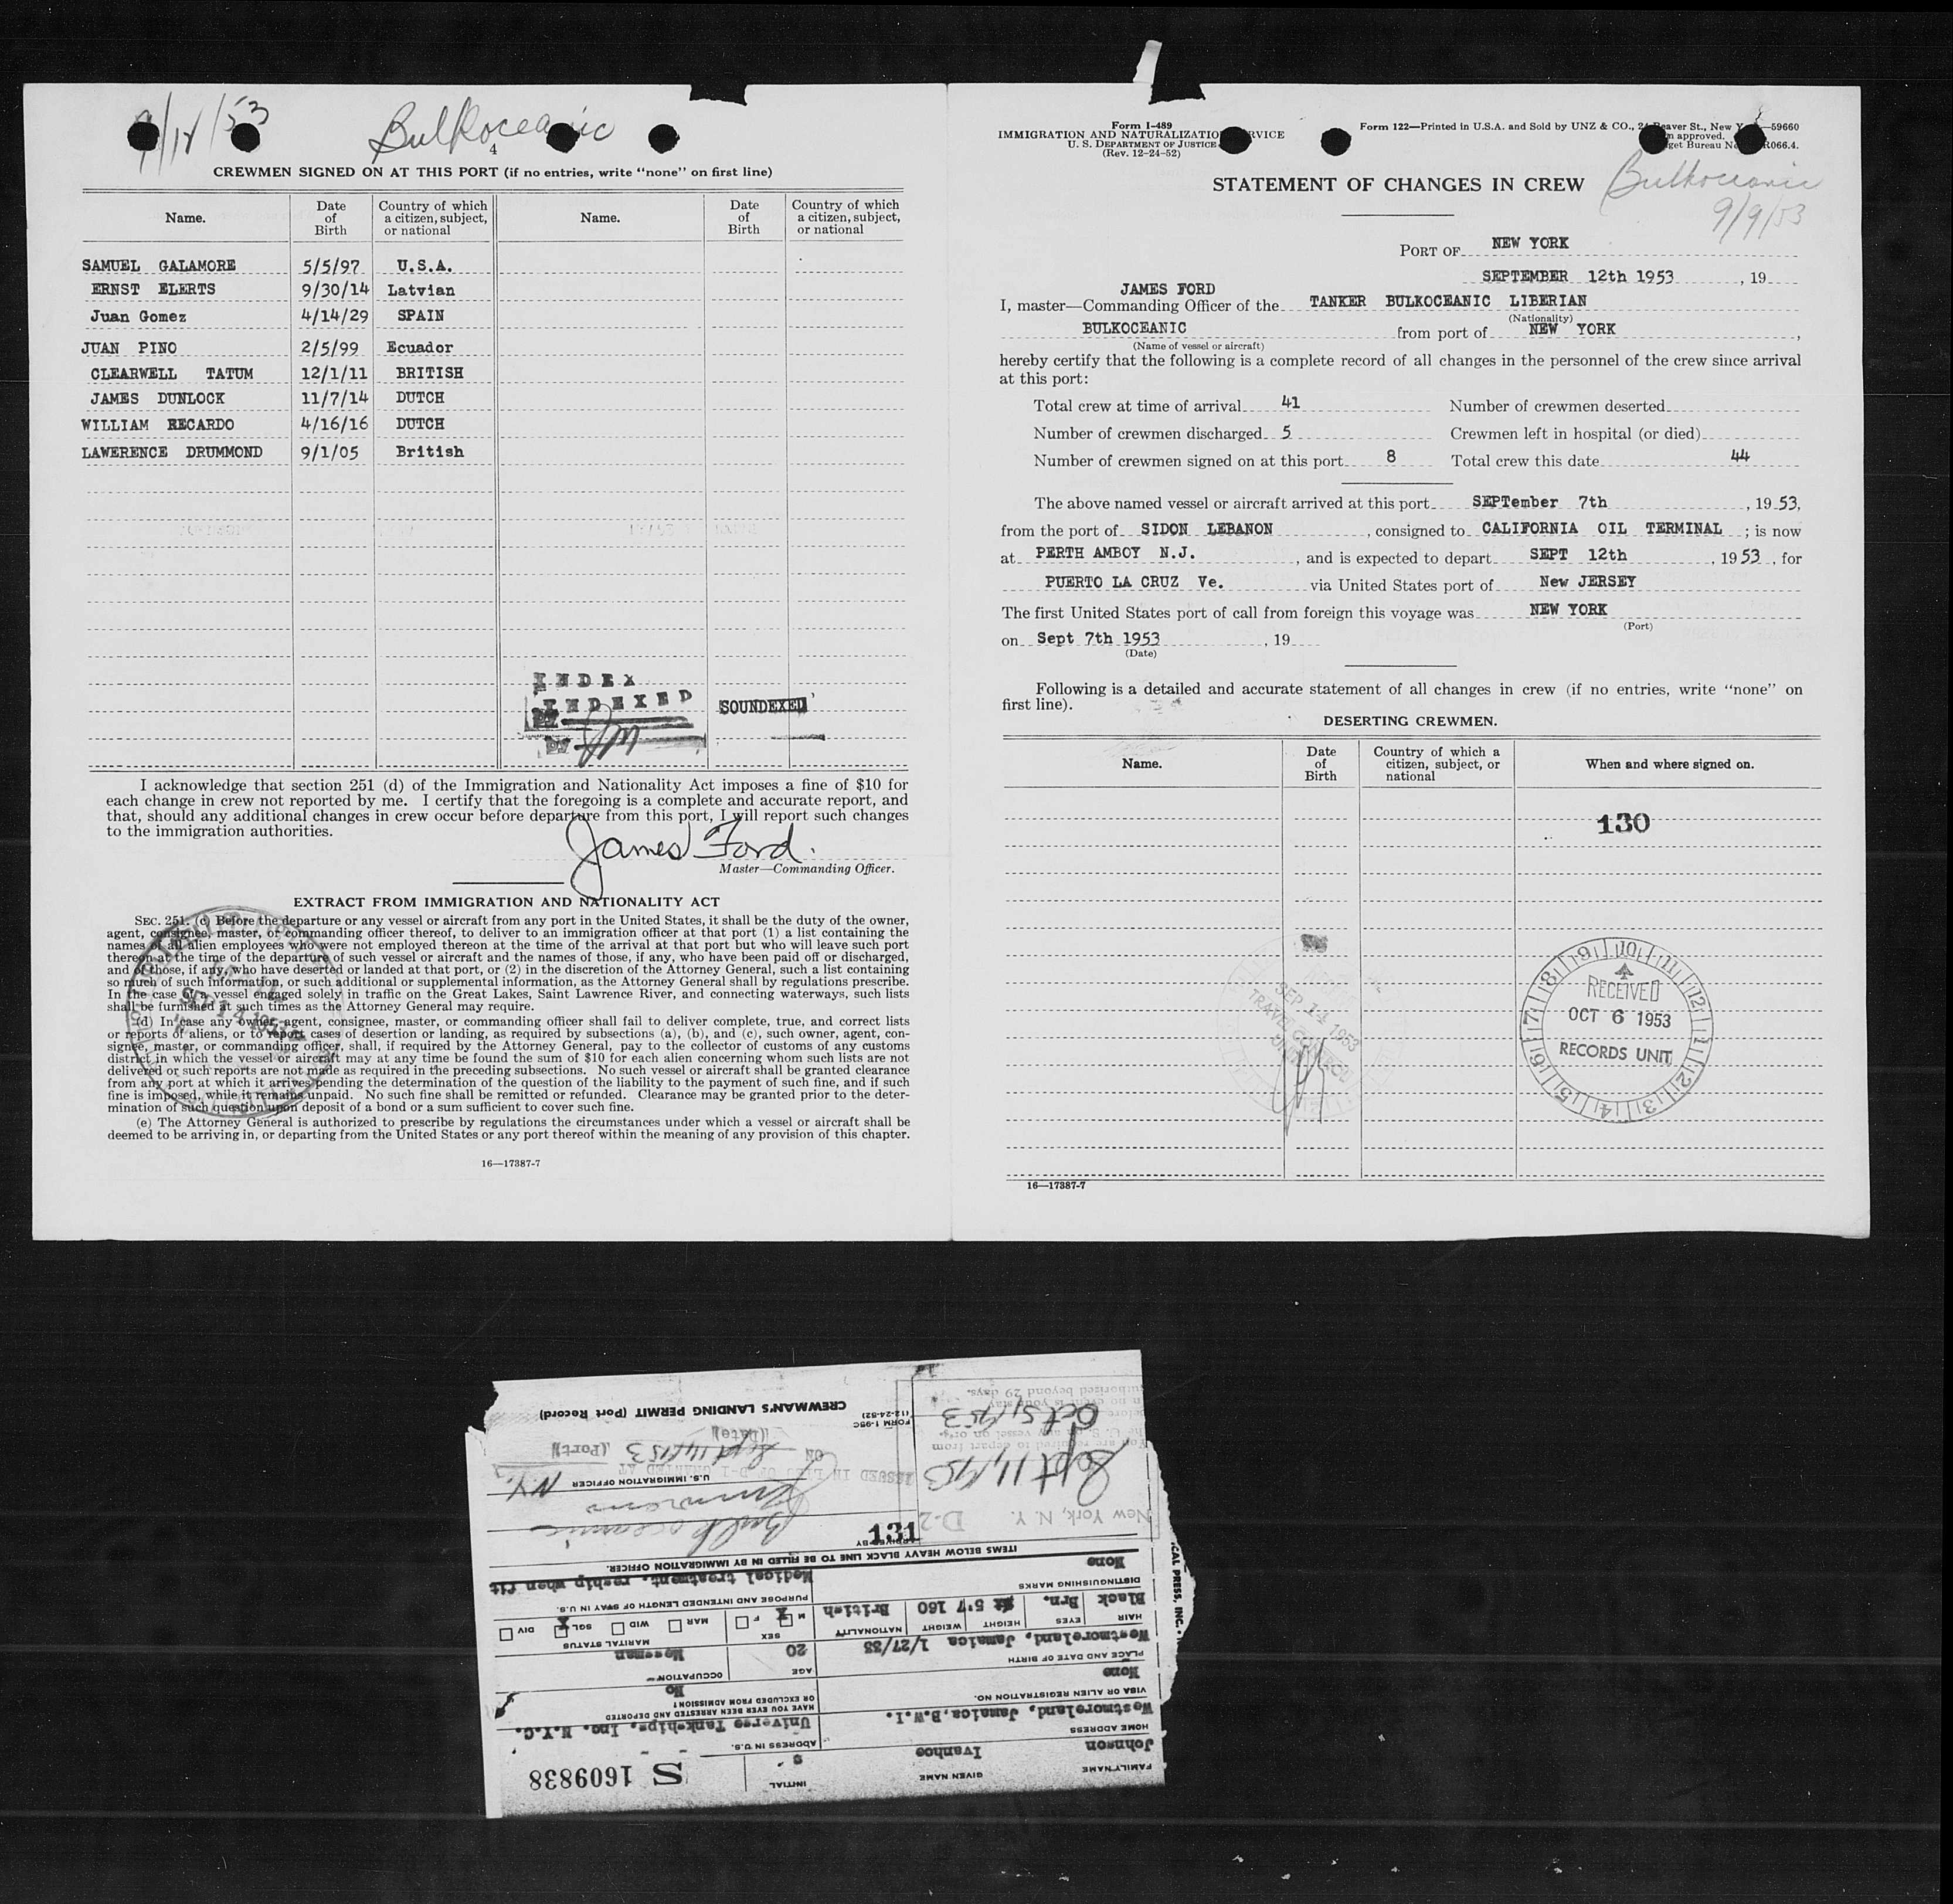 9/14/53
Bulkoceanic
4
CREWMEN SIGNED ON AT THIS PORT (if no entries, write “none” on first line)
Name. Date of Birth Country of which a citizen, subject, or national Name. Date of Birth Country of which a citizen, subject, or national
SAMUEL GALAMORE 5/5/97 U.S.A.
ERNST ELERTS 9/30/14 Latvian
Juan Gomez 4/14/29 SPAIN
JUAN PINO 2/5/99 Ecuador
CLEARWELL TATUM 12/1/11 BRITISH
JAMES DUNLOCK 11/7/14 DUTCH
WILLIAM RECARDO 4/16/16 DUTCH
LAWERENCE DRUMMOND 9/1/05 British
INDEX
INDEXED SOUNDEXED
BY
I acknowledge that section 251 (d) of the Immigration and Nationality Act imposes a fine of $10 for
each change in crew not reported by me. I certify that the foregoing is a complete and accurate report, and
that, should any additional changes in crew occur before departure from this port, I will report such changes
to the immigration authorities.
James Ford.
Master—Commanding Officer.
EXTRACT FROM IMMIGRATION AND NATIONALITY ACT
SEC. 251. (c) Before the departure or any vessel or aircraft from any port in the United States, it shall be the duty of the owner,
agent, consignee, master, or commanding officer thereof, to deliver to an immigration officer at that port (1) a list containing the
names of all alien employees who were not employed thereon at the time of the arrival at that port but who will leave such port
thereon at the time of the departure of such vessel or aircraft and the names of those, if any, who have been paid off or discharged,
and of those, if any, who have deserted or landed at that port, or (2) in the discretion of the Attorney General, such a list containing
so much of such information, or such additional or supplemental information, as the Attorney General shall by regulations prescribe.
In the case of a vessel engaged solely in traffic on the Great Lakes, Saint Lawrence River, and connecting waterways, such lists
shall be furnished at such times as the Attorney General may require.
(d) In case any owner, agent, consignee, master, or commanding officer shall fail to deliver complete, true, and correct lists
or reports of aliens, or to report cases of desertion or landing, as required by subsections (a), (b), and (c), such owner, agent, con-
signee, master, or commanding officer, shall, if required by the Attorney General, pay to the collector of customs of any customs
district in which the vessel or aircraft may at any time be found the sum of $10 for each alien concerning whom such lists are not
delivered or such reports are not made as required in the preceding subsections. No such vessel or aircraft shall be granted clearance
from any port at which it arrives pending the determination of the question of the liability to the payment of such fine, and if such
fine is imposed, while it remains unpaid. No such fine shall be remitted or refunded. Clearance may be granted prior to the deter-
mination of such question upon deposit of a bond or a sum sufficient to cover such fine.
(e) The Attorney General is authorized to prescribe by regulations the circumstances under which a vessel or aircraft shall be
deemed to be arriving in, or departing from the United States or any port thereof within the meaning of any provision of this chapter.
16—17387-7
Form I-489
IMMIGRATION AND NATURALIZATION SERVICE
U. S. DEPARTMENT OF JUSTICE
(Rev. 12-24-52)
Form 122—Printed in U.S.A. and Sold by UNZ & CO., 24 Beaver St., New Y —59660
approved.
get Bureau No. R066.4.
STATEMENT OF CHANGES IN CREW
Bulkoceanic
9/9/53
PORT OF NEW YORK
SEPTEMBER 12th 1953, 19
JAMES FORD
I, master—Commanding Officer of the TANKER BULKOCEANIC LIBERIAN
(Nationality)
BULKOCEANIC from port of NEW YORK,
(Name of vessel or aircraft)
hereby certify that the following is a complete record of all changes in the personnel of the crew since arrival
at this port:
Total crew at time of arrival 41 Number of crewmen deserted
Number of crewmen discharged 5 Crewmen left in hospital (or died)
Number of crewmen signed on at this port 8 Total crew this date 44
The above named vessel or aircraft arrived at this port SEPTember 7th, 1953,
from the port of SIDON LEBANON, consigned to CALIFORNIA OIL TERMINAL; is now
at PERTH AMBOY N.J., and is expected to depart SEPT 12th, 1953, for
PUERTO LA CRUZ Ve. via United States port of New JERSEY
The first United States port of call from foreign this voyage was NEW YORK
(Port)
on Sept 7th 1953, 19
(Date)
Following is a detailed and accurate statement of all changes in crew (if no entries, write “none” on
first line).
DESERTING CREWMEN.
Name. Date of Birth Country of which a citizen, subject, or national When and where signed on.
130
SEP 14 1953
TRAVEL CONTROL
UNIT
RECEIVED
OCT 6 1953
RECORDS UNIT
16—17387-7
FAMILY NAME GIVEN NAME INITIAL
Johnson Ivanhoe S
S 1609838
HOME ADDRESS ADDRESS IN U.S.
Westmoreland, Jamaica, B.W.I. Universe Tankships, Inc. N.Y.C.
VISA OR ALIEN REGISTRATION NO. HAVE YOU EVER BEEN ARRESTED AND DEPORTED OR EXCLUDED FROM ADMISSION?
None No
PLACE AND DATE OF BIRTH AGE OCCUPATION
Westmoreland, Jamaica 1/27/33 20 Messman
HAIR EYES HEIGHT WEIGHT NATIONALITY SEX MARITAL STATUS
Black Brn. 5'7 160 British M X F MAR WID SGL X DIV
DISTINGUISHING MARKS PURPOSE AND INTENDED LENGTH OF STAY IN U.S.
None Medical treatment, reship when fit
ITEMS BELOW HEAVY BLACK LINE TO BE FILLED IN BY IMMIGRATION OFFICER.
New York, N. Y. D-2
131
ARRIVED BY
Bulkoceanic
Sept 11, 1953
U.S. IMMIGRATION OFFICER
ISSUED IN LIEU OF D-1 GRANTED AT N.Y.
(Port)
ON Sept 11, 1953
(Date)
You are required to depart from
the U.S. on any vessel on or
before Oct 5, 1953
In no event is your stay
authorized beyond 29 days.
FORM I-95C
(12-24-52)
CREWMAN'S LANDING PERMIT (Port Record)
CAL PRESS, INC.